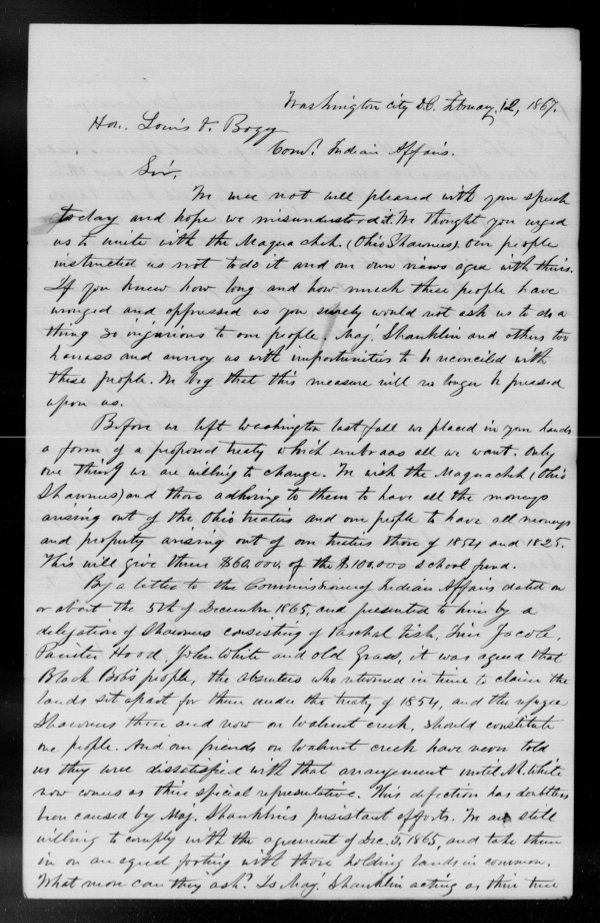 Washington City D.C. February, 12, 1867.
Hon. Louis V. Bogy
Com'r. Indian Affairs.
Sir.
We were not well pleased with your speech
today and hope we misunderstood it. We thought you urged
us to unite with the Maquachek (Ohio Shawnees). Our people
instructed us not to do it and our own views agree with theirs.
If you knew how long and how much these people have
wronged and oppressed us you surely would not ask us to do a
thing so injurious to our people. Maj. Shanklin and others too
harass and annoy us with importunities to be reconciled with
these people. We beg that this measure will no longer be pressed
upon us.
Before we left Washington last fall we placed in your hands
a form of a proposed treaty which embraces all we want. Only
one thing we are willing to change. We wish the Maquachek (Ohio
Shawnees) and those adhering to them to have all the moneys
arising out of the Ohio treaties and our people to have all moneys
and property arising out of our treaties those of 1854 and 1825.
This will give them $60,000. of the $100,000 school fund.
By a letter to the Commissioner of Indian Affairs dated on
or about the 5th of December 1865, and presented to him by a
delegation of Shawnees consisting of Paschal Fish,
Hood, John White and old Grass, it was agreed that
Black Bob's people, the absentees who returned in time to claim the
lands set apart for them under the treaty of 1854, and the refugee
Shawnees then and now on Walnut creek, should constitute
one people. And our friends on Walnut creek have never told
us they were dissatisfied with that arrangement until Mr. White
now comes as their special representative. This defection has doubtless
been caused by Maj. Shanklin's persistant efforts. We are still
willing to comply with the agreement of Dec. 5, 1865, and take them
in on an equal footing with those holding lands in common.
What more can they ask? Is Maj. Shanklin acting as their true